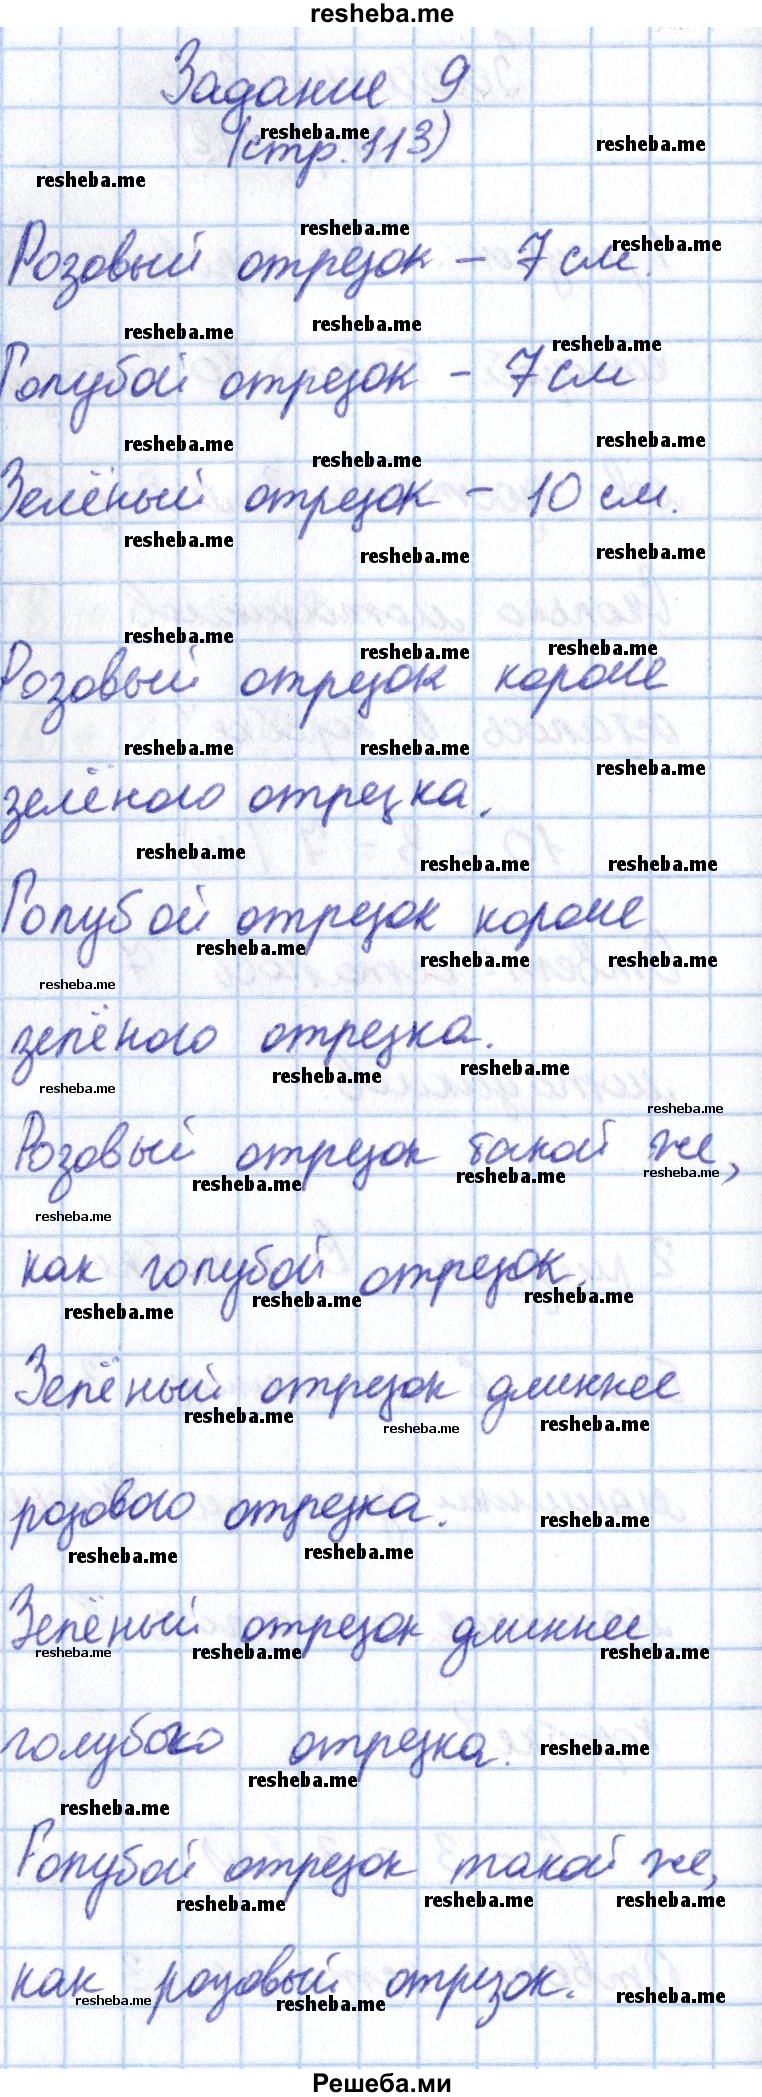 resheba.me
Задание 9
(стр. 113)
Розовый отрезок – 7 см.
Голубой отрезок – 7 см
Зелёный отрезок – 10 см.
Розовый отрезок короче
зелёного отрезка.
Голубой отрезок короче
зелёного отрезка.
Розовый отрезок такой же,
как голубой отрезок.
Зелёный отрезок длиннее
розового отрезка.
Зелёный отрезок длиннее
голубого отрезка.
Голубой отрезок такой же,
как розовый отрезок.
Решеба.ми